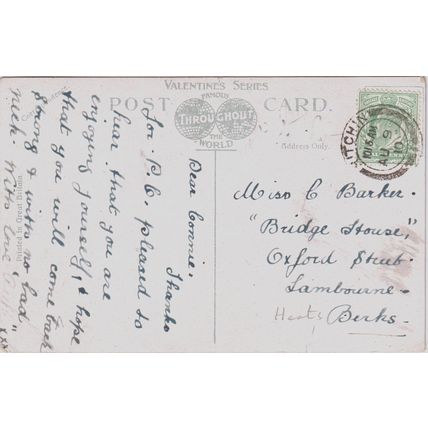 VALENTINE'S SERIES
FAMOUS
THROUGHOUT
THE
WORLD
POST CARD.
Address Only.
Printed in Great Britain.
Dear Connie.
Thanks
for P.C. pleased to
hear that you are
enjoying yourself, & hope
that you will come back
strong & with no bad
neck. With love
xxx
AU 9
10
Miss C Barker.
"Bridge House,"
Oxford Street.
Lambourne.
Berks.